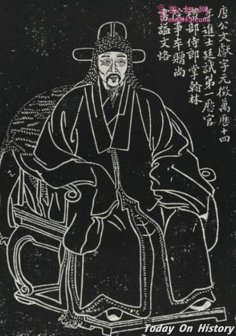 唐公文獻字元徵萬曆十四
年進士廷試第一歷官
禮部侍郎掌翰林
院事卒贈尚
書謚文恪
Today On History